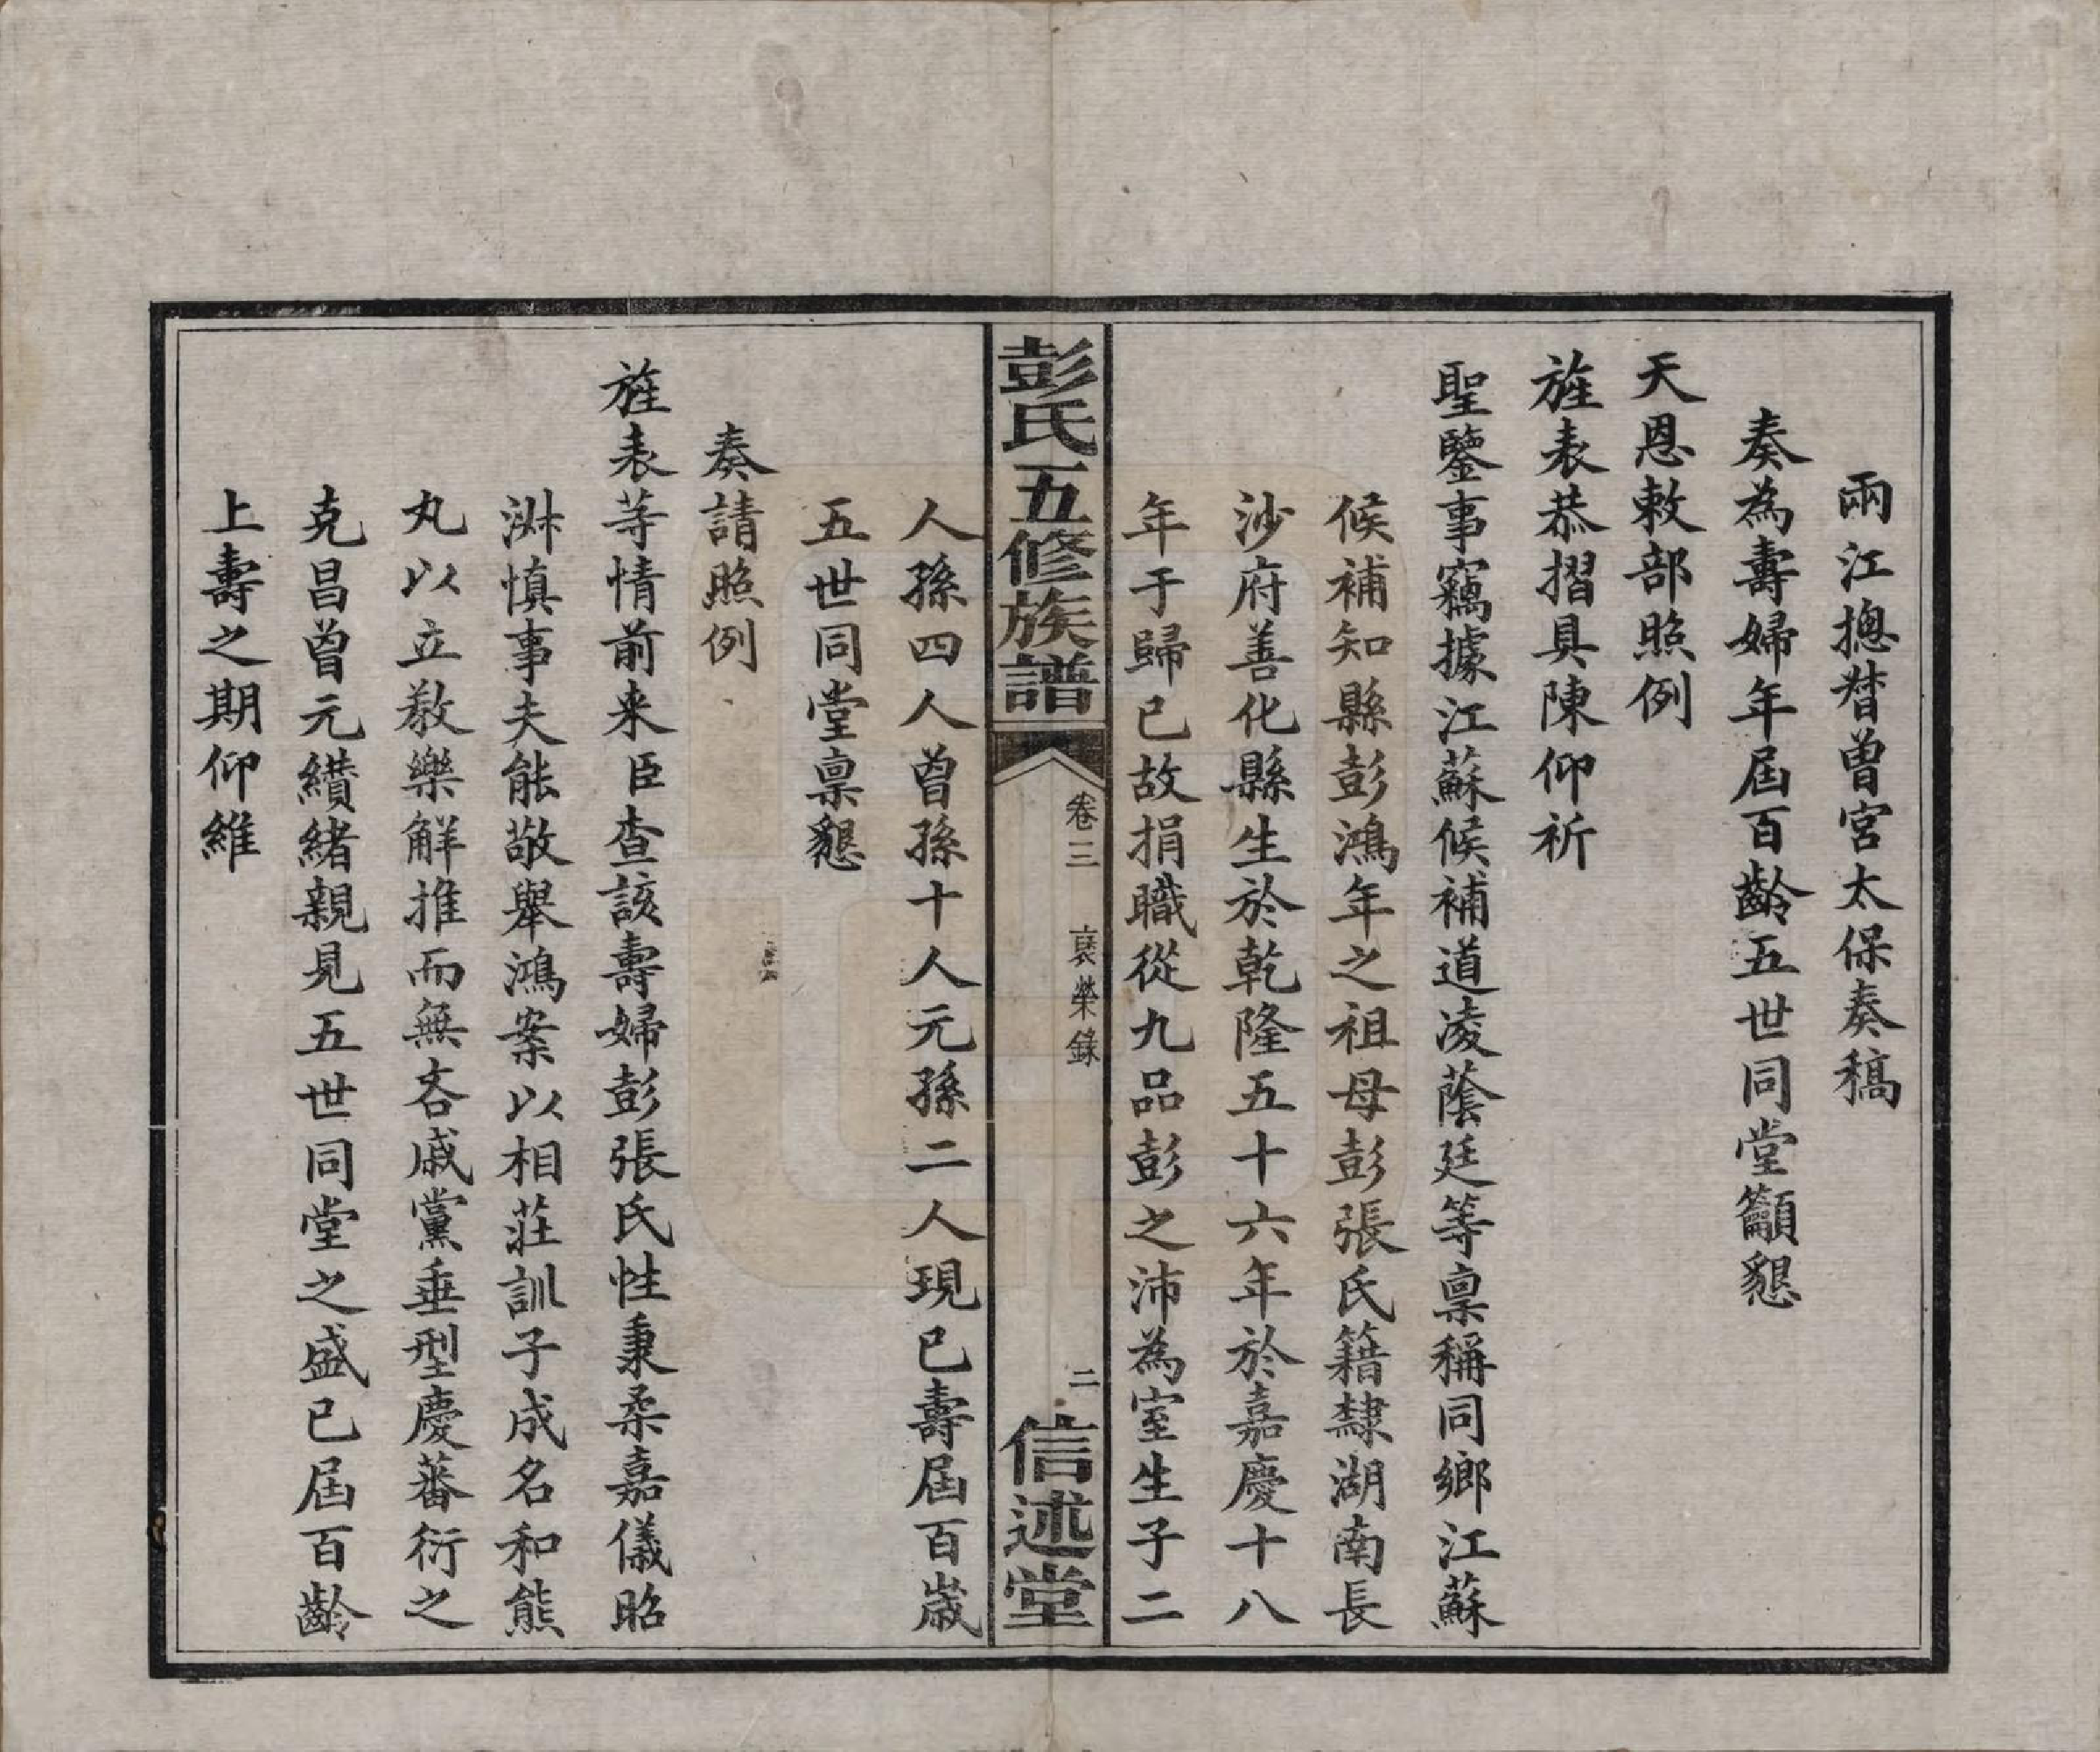 兩江摠督曾宮太保奏稿
奏為壽婦年屆百齡五世同堂籲懇
天恩敕部照例
旌表恭摺具陳仰祈
聖鑒事竊據江蘇候補道凌蔭廷等禀稱同鄉江蘇
候補知縣彭鴻年之祖母彭張氏籍隸湖南長
沙府善化縣生於乾隆五十六年於嘉慶十八
年于歸已故捐職從九品彭之沛為室生子二
彭氏五修族譜
卷三 褒榮錄
二
信述堂
人孫四人曾孫十人元孫二人現已壽屆百歲
五世同堂禀懇
奏請照例
旌表等情前来臣查該壽婦彭張氏性秉柔嘉儀昭
淑慎事夫能敬舉鴻案以相莊訓子成名和熊
丸以立教樂解推而無吝戚黨垂型慶蕃衍之
克昌曾元纘緒親見五世同堂之盛已屆百齡
上壽之期仰維